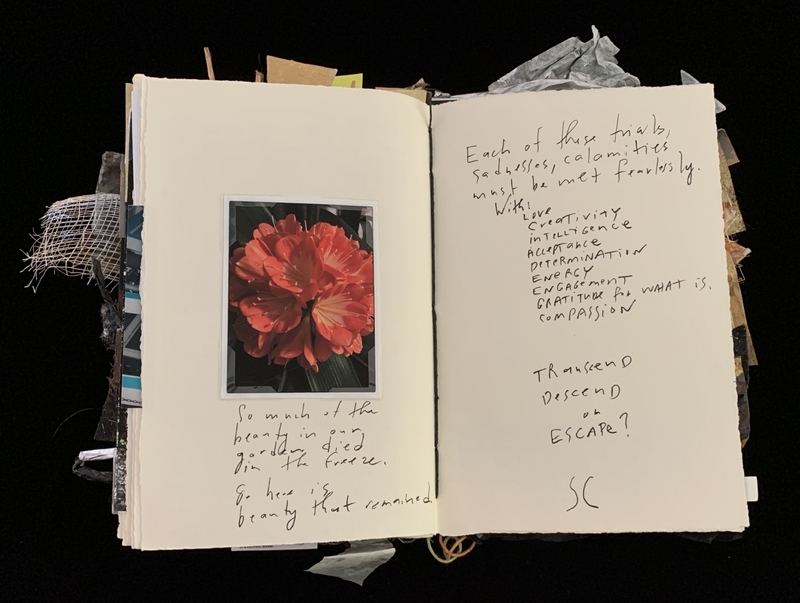 So much of the
beauty in our
garden died
in the freeze.
So here is
beauty that remained
Each of these trials,
sadnesses, calamities
must be met fearlessly.
With:
Love
Creativity
intelligence
Acceptance
DETERMINATION
ENERGY
ENGAGEMENT
GRATITUDE for WHAT is.
COMPASSION
TRanscenD
DescenD
or
ESCAPe?
SC